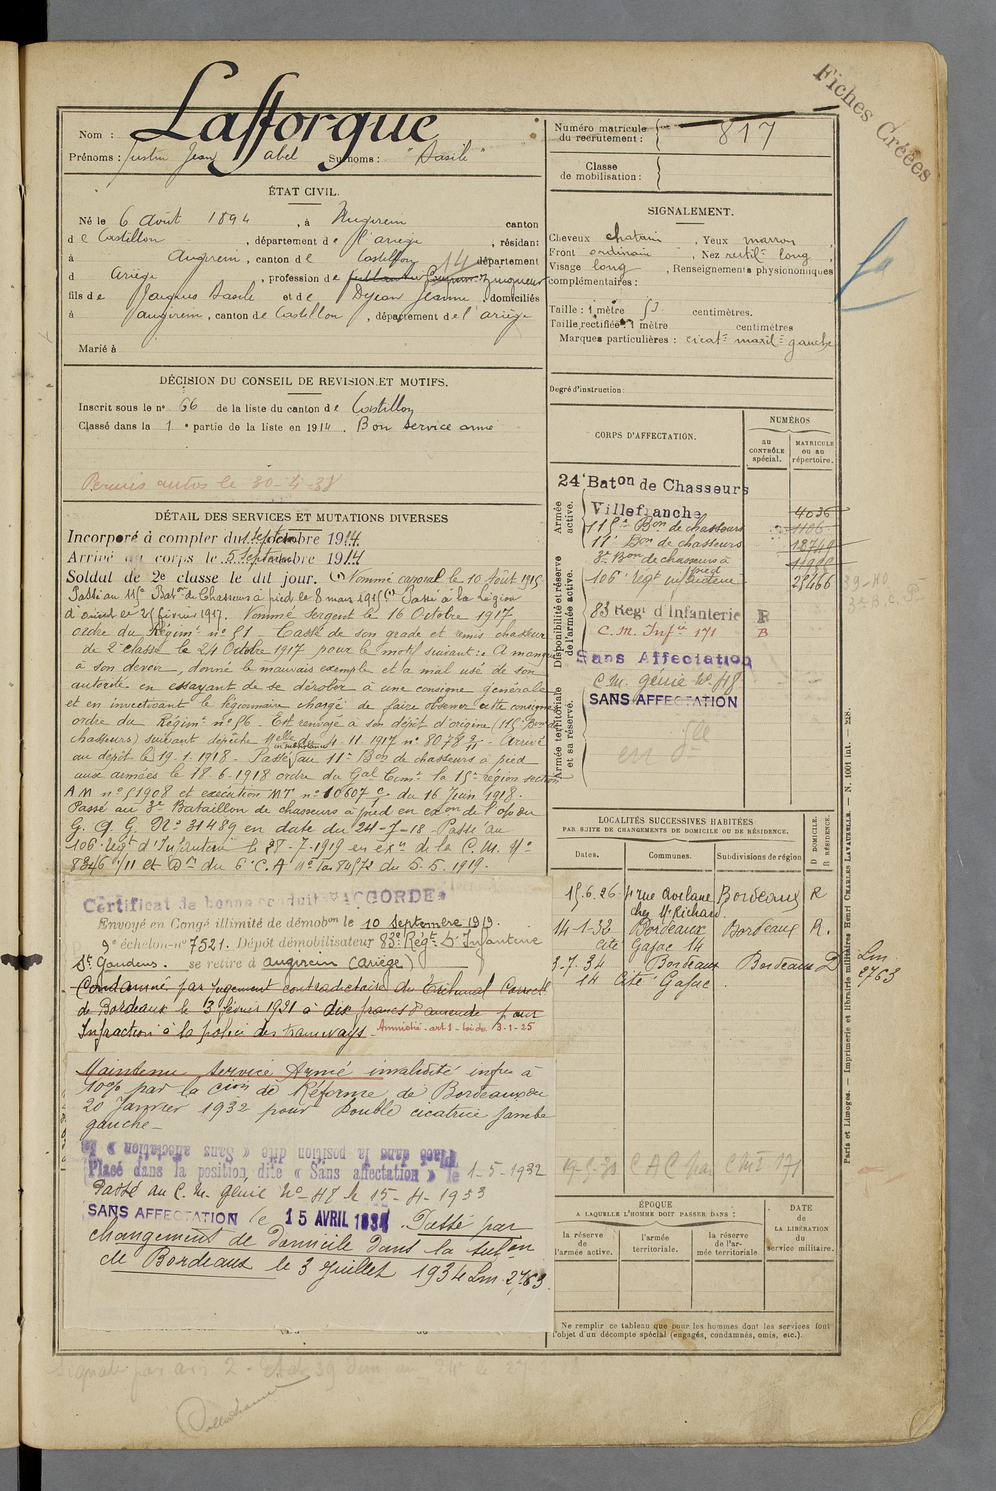 Fiches Créées
Nom : Lafforgue
Prénoms : Justin Jean Abel Surnoms : "Dasile"
ÉTAT CIVIL.
Né le 6 Août 1894, à Augirein canton
de Castillon, département de l'ariège, résidant
à Augirein, canton de Castillon département
d Ariège, profession de zingueur
fils de Jacques Dasile et de Dejean Jeanne, domiciliés
à augirein, canton de Castillon, département de l'ariège
Marié à
DÉCISION DU CONSEIL DE REVISION ET MOTIFS.
Inscrit sous le n° 66 de la liste du canton de Castillon
Classé dans la 1e partie de la liste en 1914. Bon service armé
Permis autos le 30-4-38
DÉTAIL DES SERVICES ET MUTATIONS DIVERSES
Incorporé à compter du 1 septembre 1914
Arrivé au corps le 5 septembre 1914
Soldat de 2e classe le dit jour. (1) Nommé caporal le 10 Août 1915
Passé au 115e Baton de Chasseurs à pied le 8 mars 1915 (1) Passé à la légion
d'orient le 25 février 1917. Nommé Sergent le 16 Octobre 1917
ordre du Régimt n° 51. Cassé de son grade et remis chasseur
de 2e classe le 24 Octobre 1917 pour le motif suivant : A manqué
à son devoir, donné le mauvais exemple et a mal usé de son
autorité en essayant de se dérober à une consigne générale
et en invectivant le légionnaire chargé de faire observer cette consigne
ordre du Régimt n° 56 - Est renvoyé à son dépôt d'origine (115e Bon de
chasseurs) suivant dépêche Melle du 4-11-1917 n° 8078 2/11 - Arrivé
au dépôt le 19-1-1918 - Passé au 11e Bon de chasseurs à pied
aux armées le 18-6-1918 ordre du Gal Comt la 15e région section
A M n° 51908 et exécution MT n° 10607 c/7 du 16 Juin 1918.
Passé au 3e Bataillon de chasseurs à pied en exon de l'ordre
G. Q. G. N° 31489 en date du 24-7-18 - Passé au
106e Régt d'Infanterie le 28-7-1919 en exon de la C. M. N°
8346 1/11 et Don du 6e C.A n° 84572 du 5-5-1919.
Certificat de bonne conduite "ACCORDÉ"
Envoyé en Congé illimité de démobon le 10 Septembre 1919.
9e échelon - n° 7521. Dépôt démobilisateur 83e Régt D'Infanterie
St Gaudens. se retire à augirein (ariège)
Condamné par jugement contradictoire du Tribunal Correctl
de Bordeaux le 3 février 1921 à dix francs d'amende pour
Infraction à la police des tramways. Amnistié - art 1 - loi du 3-1-25
Maintenu Service Armé invalidité infre à
10% par la Cion de Réforme de Bordeaux du
20 Janvier 1932 pour Double cicatrice jambe
gauche -
Placé dans la position dite « Sans affectation » le
Placé dans la position dite « Sans affectation » le 1-5-1932
Passé au C. M. Génie N° 48 le 15-4-1933
SANS AFFECTATION le 15 AVRIL 1934. Passé par
changement de Domicile dans la subon
de Bordeaux le 3 Juillet 1934 Lm. 2763
Numéro matricule du recrutement : 817
Classe de mobilisation :
SIGNALEMENT.
Cheveux chatain, Yeux marron
Front ordinaire, Nez rectil. long,
Visage long, Renseignements physionomiques
complémentaires :
Taille : 1 mètre 53 centimètres.
Taille rectifiée : 1 mètre centimètres
Marques particulières : cicate maxil. gauche
Degré d'instruction :
CORPS D'AFFECTATION.
NUMÉROS
au CONTRÔLE spécial.
MATRICULE ou au répertoire.
Armée active.
24e Baton de Chasseurs
Villefranche 4036
115e Bon de chasseurs 1106
11e Bon de chasseurs
3e Bon de chasseurs à pied
106e régt infanterie 25466
Disponibilité et réserve de l'armée active.
83 Régt d'Infanterie R
C. M. Infie 171 B
Sans Affectation
C. M. génie N° 48
SANS AFFECTATION
Armée territoriale et sa réserve.
LOCALITÉS SUCCESSIVES HABITÉES
PAR SUITE DE CHANGEMENTS DE DOMICILE OU DE RÉSIDENCE.
Dates. Communes. Subdivisions de région D DOMICILE. R RÉSIDENCE.
15.6.26 rue Berlane Bordeaux R
chez Mr Richard
14-1-32 Bordeaux Bordeaux R.
Cité Gajac 14
3-7-34 Bordeaux Bordeaux D Lm 2763
14 Cité Gajac
ÉPOQUE
A LAQUELLE L'HOMME DOIT PASSER DANS :
la réserve de l'armée active.
l'armée territoriale.
la réserve de l'armée territoriale
DATE de LA LIBÉRATION du service militaire.
Ne remplir ce tableau que pour les hommes dont les services font
l'objet d'un décompte spécial (engagés, condamnés, omis, etc.).
Paris et Limoges. — Imprimerie et librairie militaires Henri CHARLES LAVAUZELLE. — N. 1001 int. — 228.